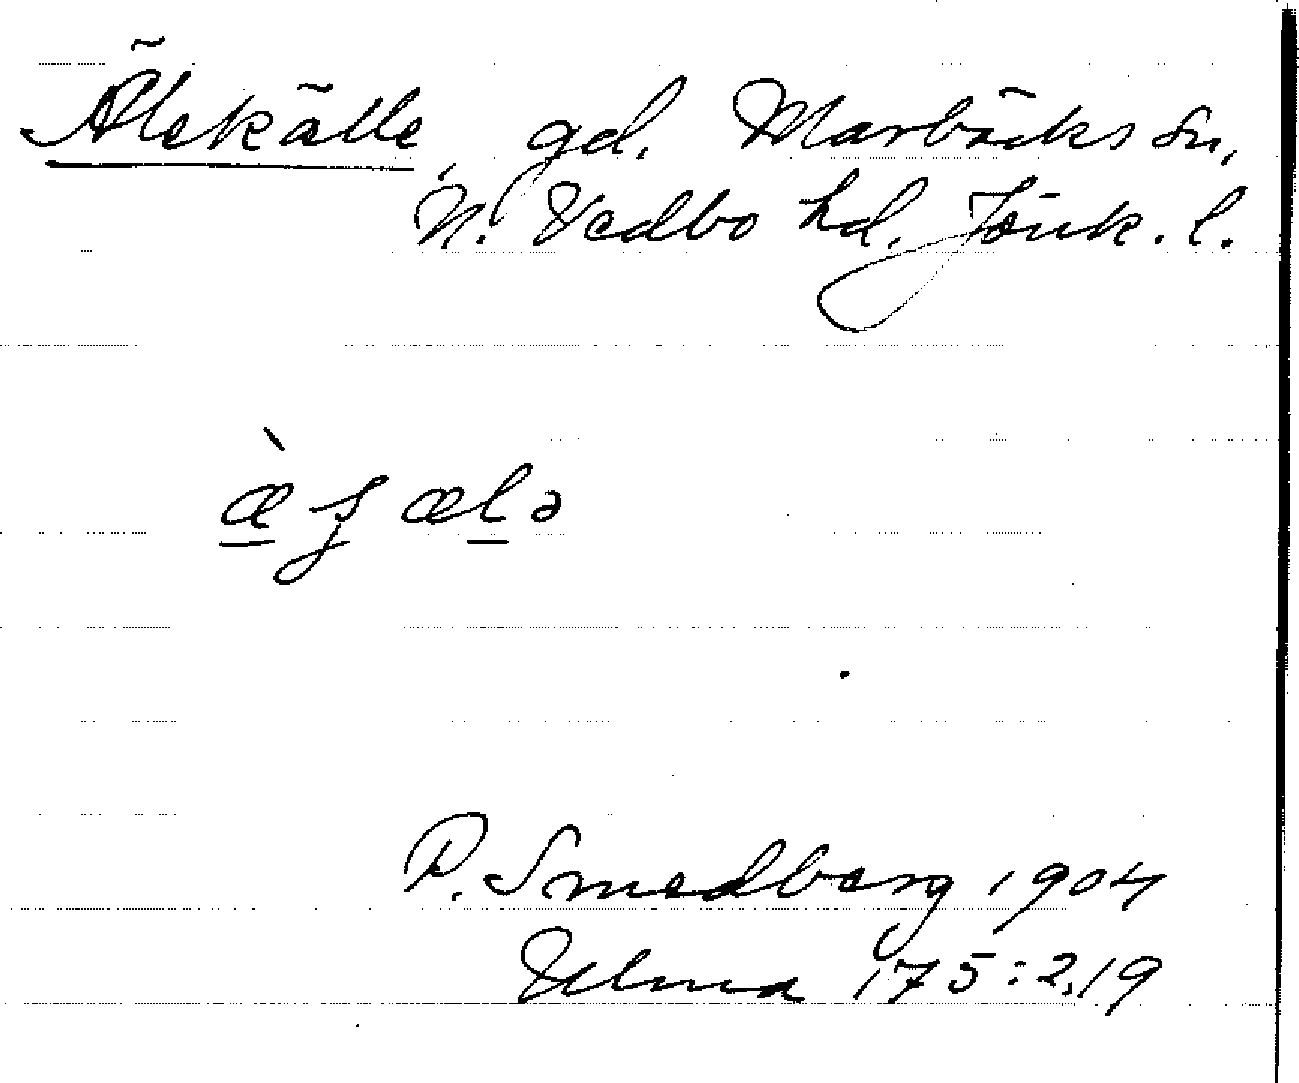 Älekälle, gd. Marbäcks sn,
N. Vedbo hd. Jönk. l.
P. Smedberg 1904
Ulma 175:2,19